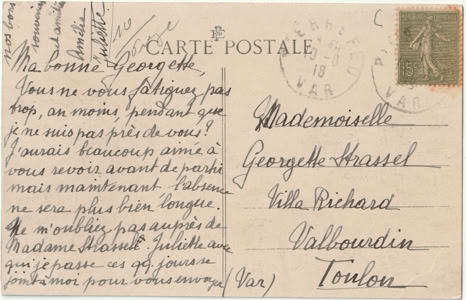 CARTE POSTALE
Ma bonne Georgette,
Vous ne vous fatiguez pas
trop, au moins, pendant que
je ne suis pas près de vous?
J'aurais beaucoup aimé à
vous revoir avant de partir
mais maintenant l'absence
ne sera plus bien longue.
Ne m'oubliez pas auprès de
Madame Strassel. Juliette avec
qui je passe ces qq. jours se
joint à moi pour vous envoyer
nos bons
souvenirs
et amitiés
Amélia
Juliette
PIERREFEU
18
VAR
15c
VAR
Mademoiselle
Georgette Strassel
Villa Richard
Valbourdin
Toulon
(Var)